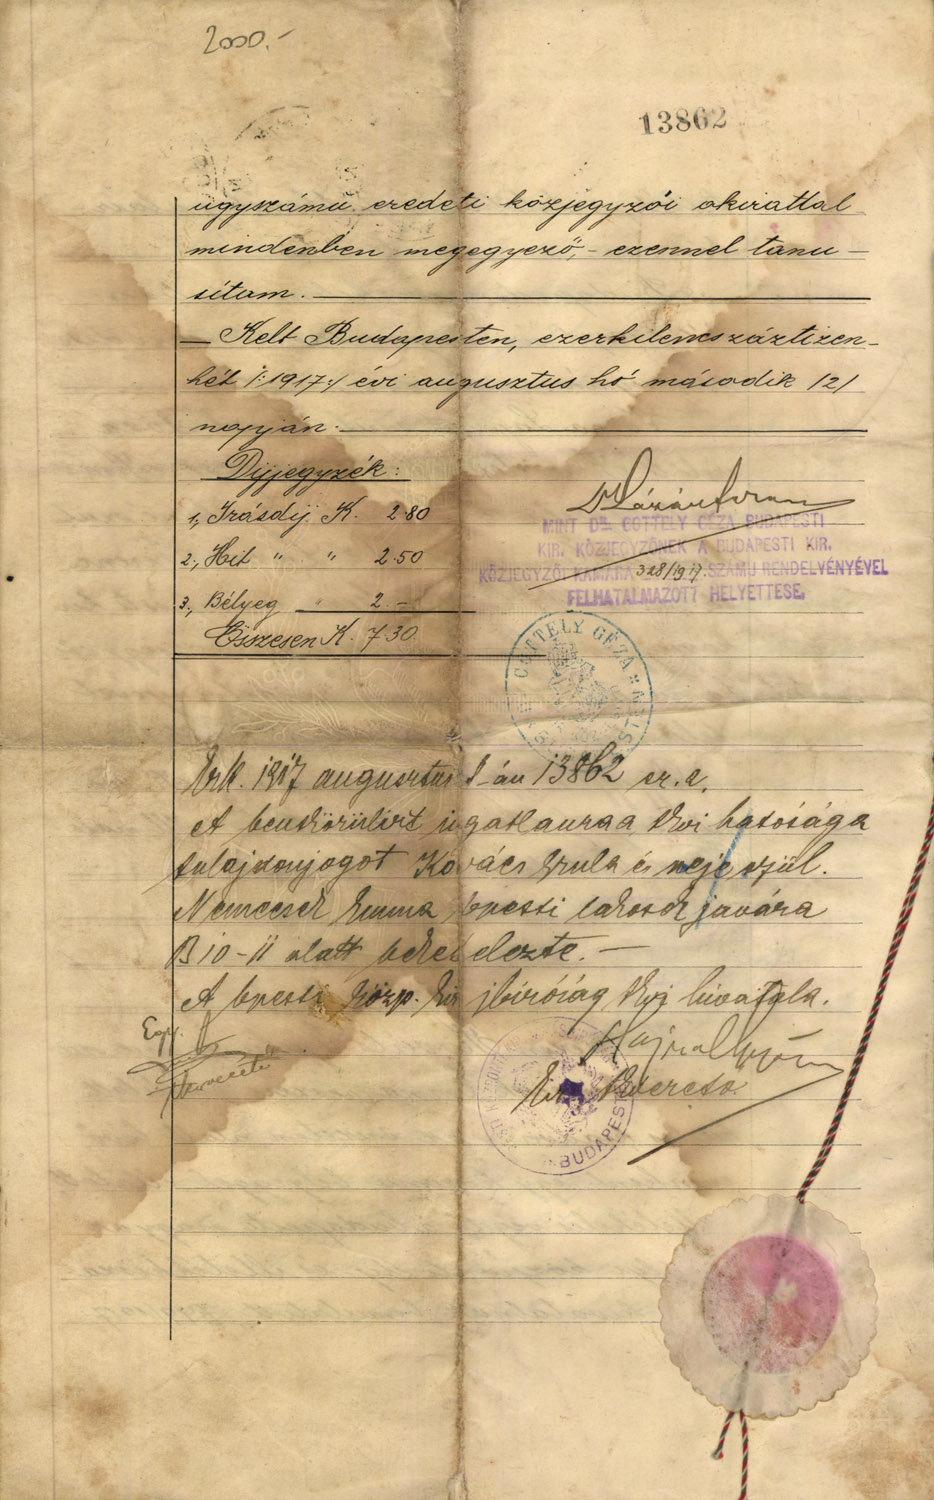 2000.-
13862
ügyszámu eredeti közjegyzői okirattal
mindenben megegyező, - ezennel tanu-
sitom.
- Kelt Budapesten, ezerkilencszáztizen-
hét /:1917:/ évi augusztus hó második /2/
napján.
Díjjegyzék:
1., Irásdíj K. 2.80
2., Hit " " 2.50
3., Bélyeg " 2.-
Összesen K. 7.30
MINT DR. COTTELY GÉZA BUDAPESTI
KIR. KÖZJEGYZŐNEK A BUDAPESTI KIR.
KÖZJEGYZŐI KAMARA 328/1917. SZÁMU RENDELVÉNYÉVEL
FELHATALMAZOTT HELYETTESE.
COTTELY GÉZA
1917 augusztus -án 13862 sz. a.
A hatósága
tulajdonjogot Kovács és neje szül.
Nemcsek Emma bpesti lakosok javára
B 10-11 alatt bekebelezte. -
A bpesti közp. kir. jbiróság tkvi hivatala.
BUDAPEST